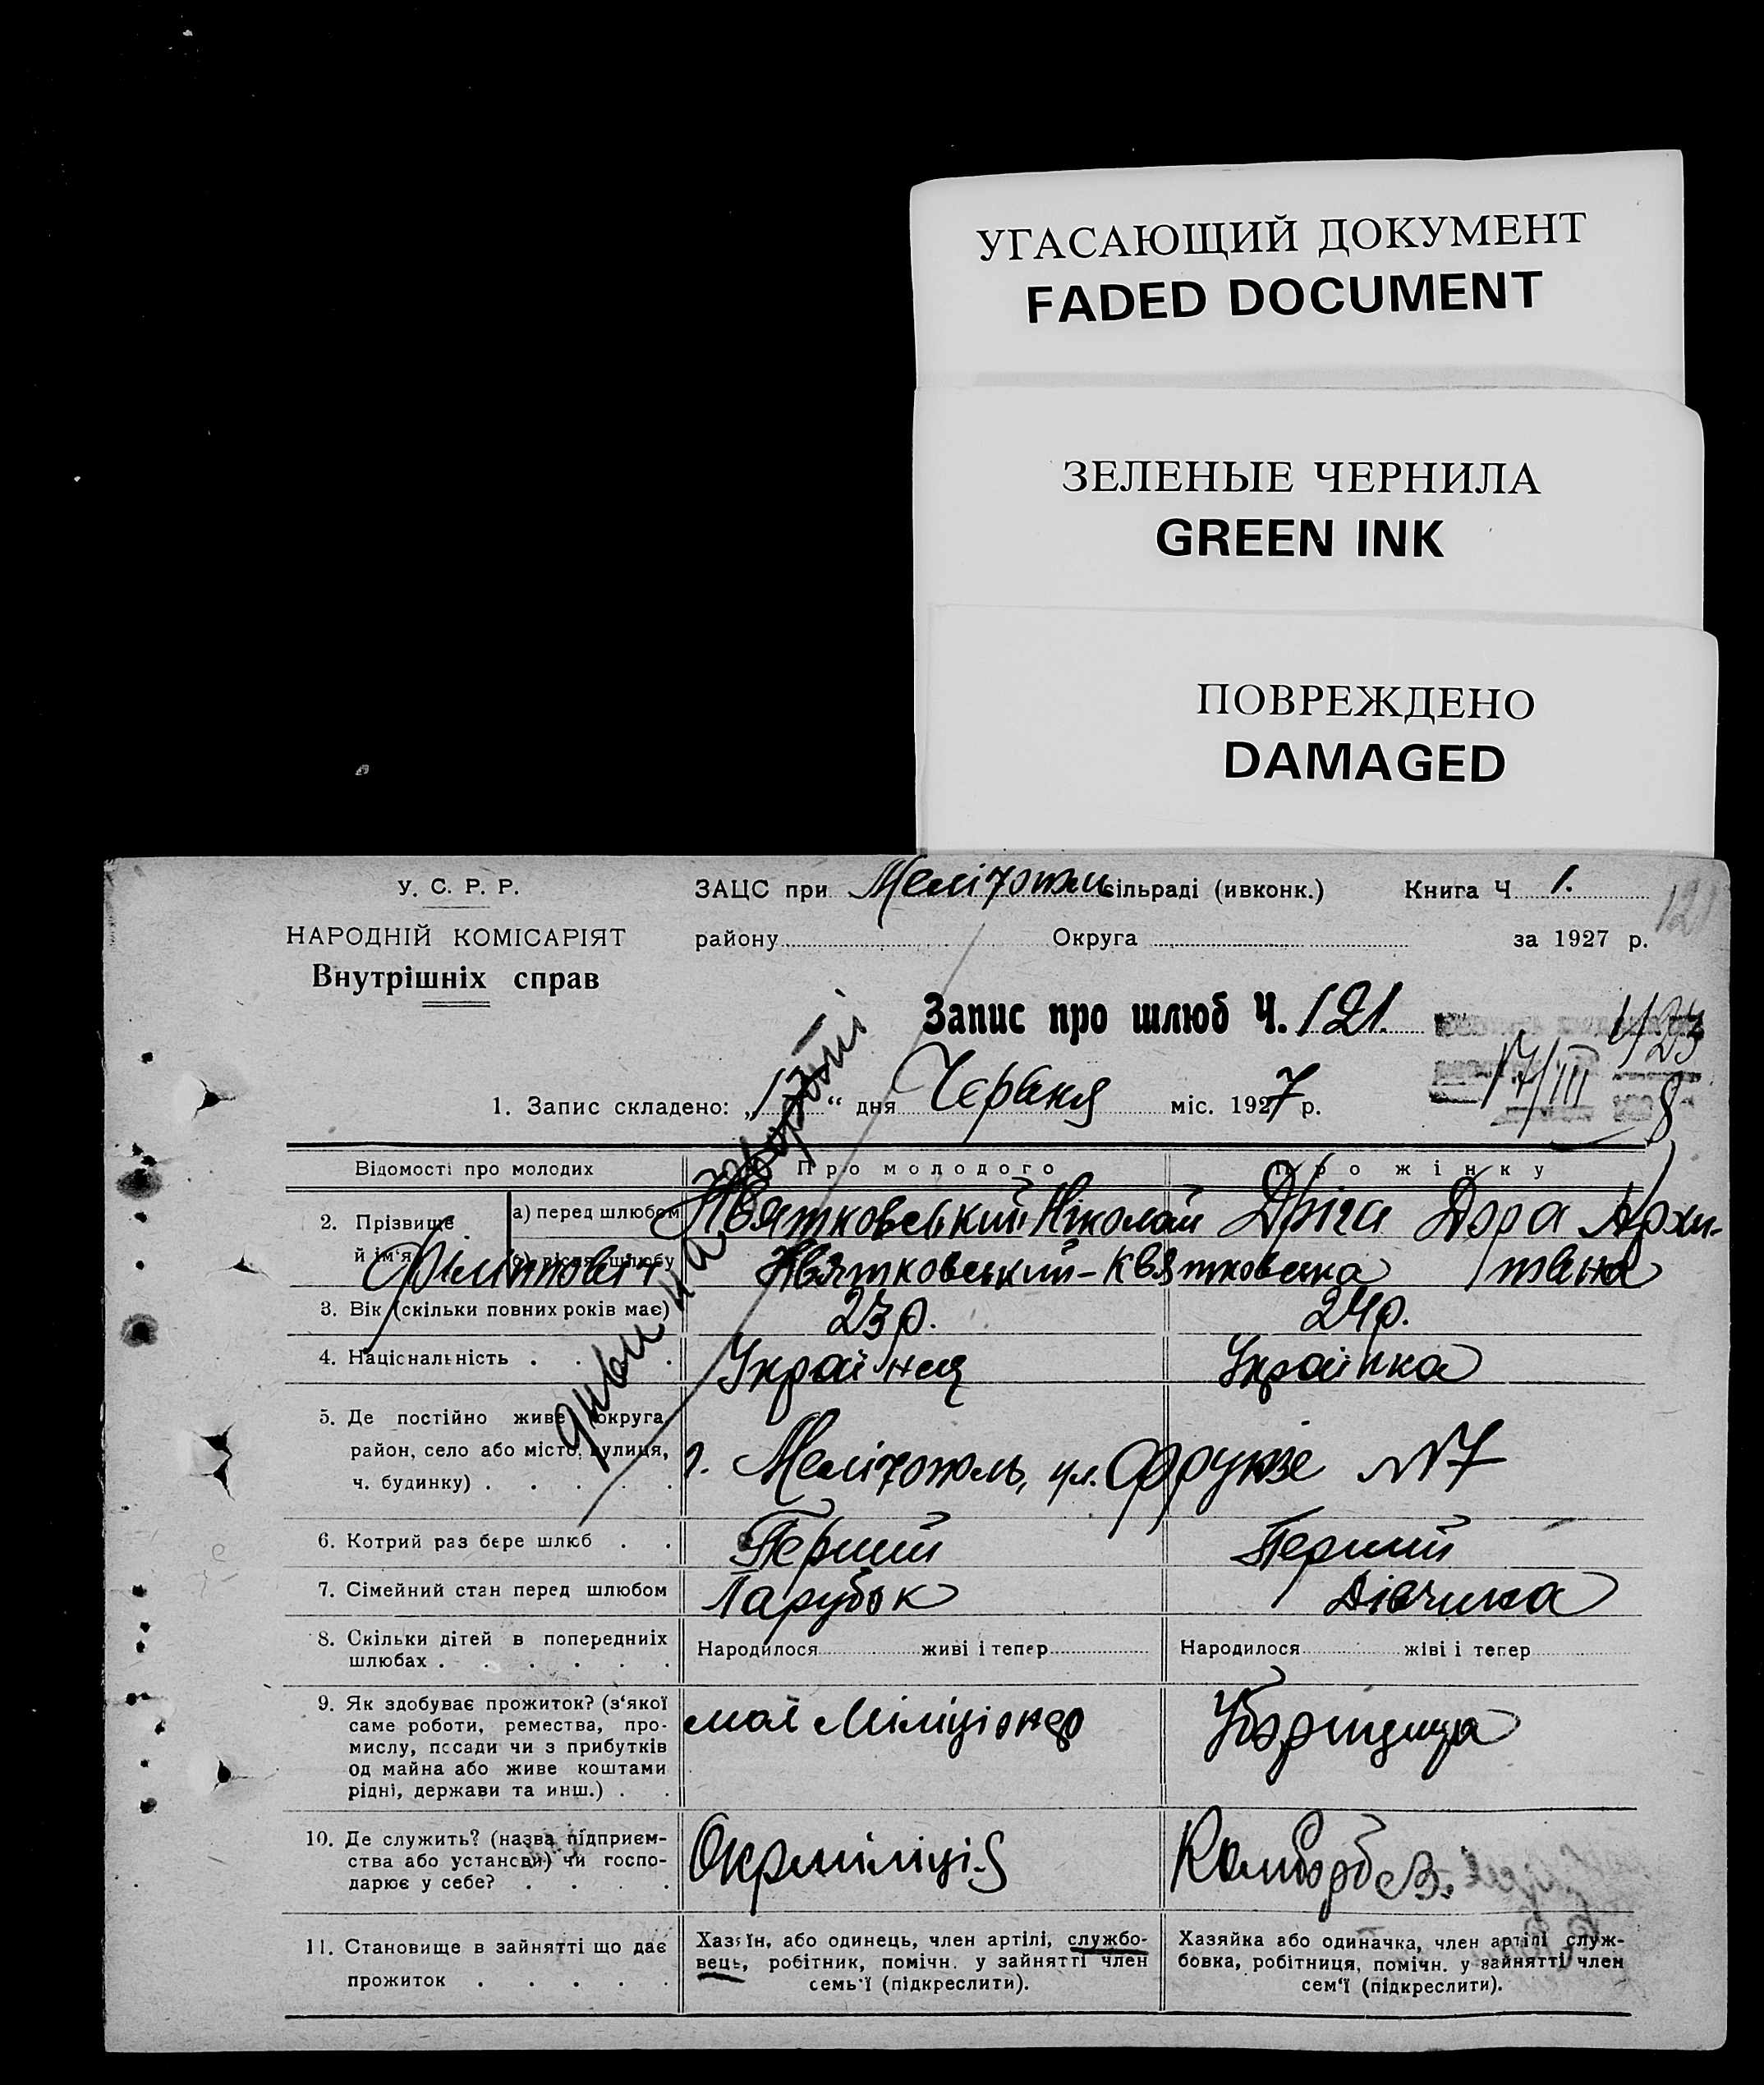 УГАСАЮЩИЙ ДОКУМЕНТ
FADED DOCUMENT
ЗЕЛЕНЫЕ ЧЕРНИЛА
GREEN INK
ПОВРЕЖДЕНО
DAMAGED
У. С. Р. Р.
НАРОДНІЙ КОМІСАРІЯТ
Внутрішніх справ
ЗАЦС при Мелітопол сільраді (ивконк.) Книга Ч 1.
району Округа за 1927 р.
121
Запис про шлюб Ч. 121.
17/III
1. Запис складено: „17“ дня Червня міс. 1927 р.
Відомості про молодих Про молодого Про жінку
2. Прізвище й ім'я
а) перед шлюбом Квятковський Ніколай Дріга Дора Архи-
Філіпович б) після шлюбу Квятковський - Квятковська
3. Вік (скільки повних років має) 23 р. 24 р.
4. Національність Українец Українка
5. Де постійно живе (округа,
район, село або місто, вулиця, г. Мелітополь, ул. Фрунзе №7
ч. будинку)
дивись на звороті
6. Котрий раз бере шлюб Перший Перший
7. Сімейний стан перед шлюбом Парубок Дівчина
8. Скільки дітей в попередниіх Народилося живі і тепер Народилося жіві і тепер
шлюбах
9. Як здобуває прожиток? (з'якої мол Міліціонер Уборщица
саме роботи, ремества, про-
мислу, пссади чи з прибутків
од майна або живе коштами
рідні, держави та инш.)
10. Де служить? (назва підприєм- Окрміліція
ства або устансви) чи госпо-
дарює у себе?
11. Становище в зайнятті що дає
прожиток
Хазяїн, або одинець, член артілі, службо-
вець, робітник, помічн. у зайнятті член
семь'ї (підкреслити).
Хазяйка або одиначка, член артілі служ-
бовка, робітниця, помічн. у зайнятті член
сем'ї (підкреслити).